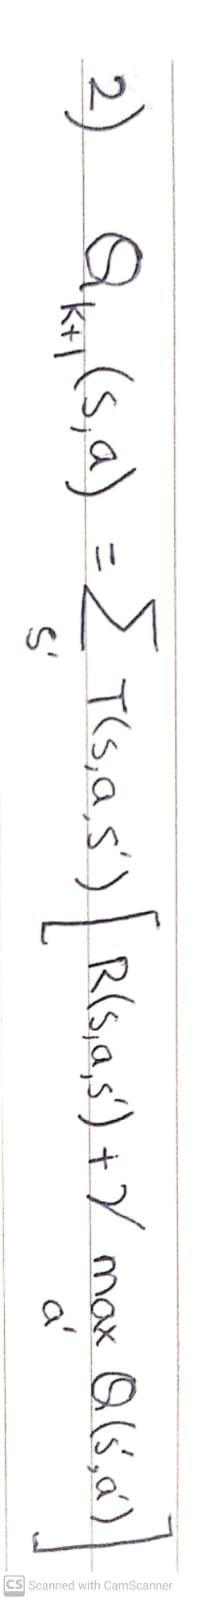 2) Q_{k+1}(s,a) = \sum_{s'} T(s,a,s') [ R(s,a,s') + γ \max_{a'} Q(s',a') ]
CS Scanned with CamScanner